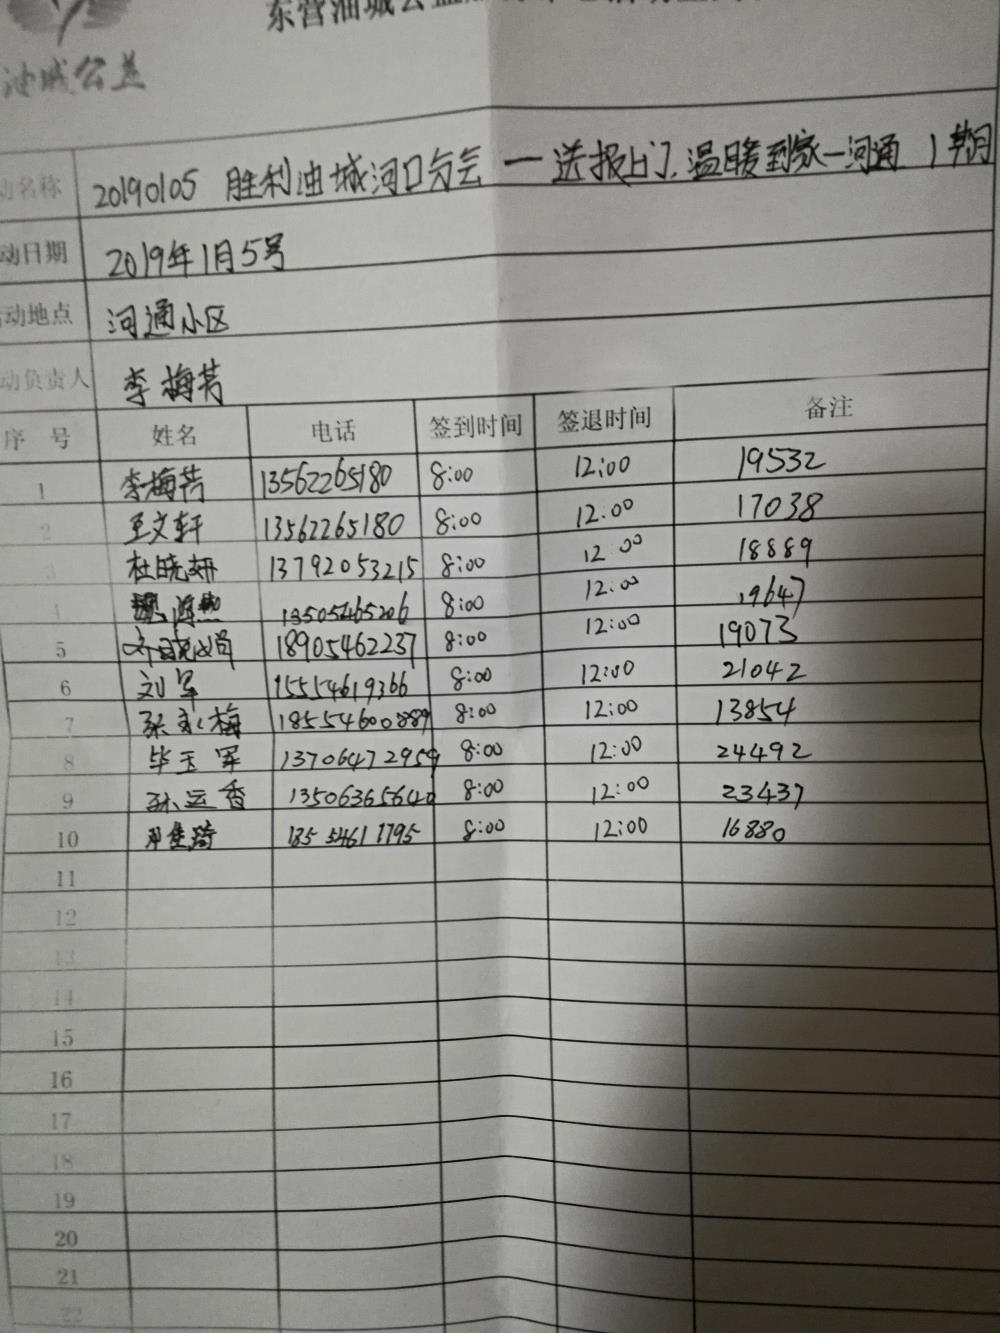 东营油城公益
油城公益
动名称 20190105 胜利油城河口分会 一送报上门.温暖到家一河通 1期
动日期 2019年1月5号
动地点 河通小区
动负责人 李梅芳
序 号 姓名 电话 签到时间 签退时间 备注
1 李梅芳 13562265180 8:00 12:00 19532
2 王文轩 13562265180 8:00 12:00 17038
杜晓妍 13792053215 8:00 12:00 18889
13505465206 8:00 12:00 19647
5 18905462237 8:00 12:00 19073
6 刘军 15554619366 8:00 12:00 21042
7 18554600889 8:00 12:00 13854
8 毕玉军 13706472959 8:00 12:00 24492
9 孙运香 13506365640 8:00 12:00 23437
10 8:00 12:00 16880
11
12
13
14
15
16
17
18
19
20
21
22